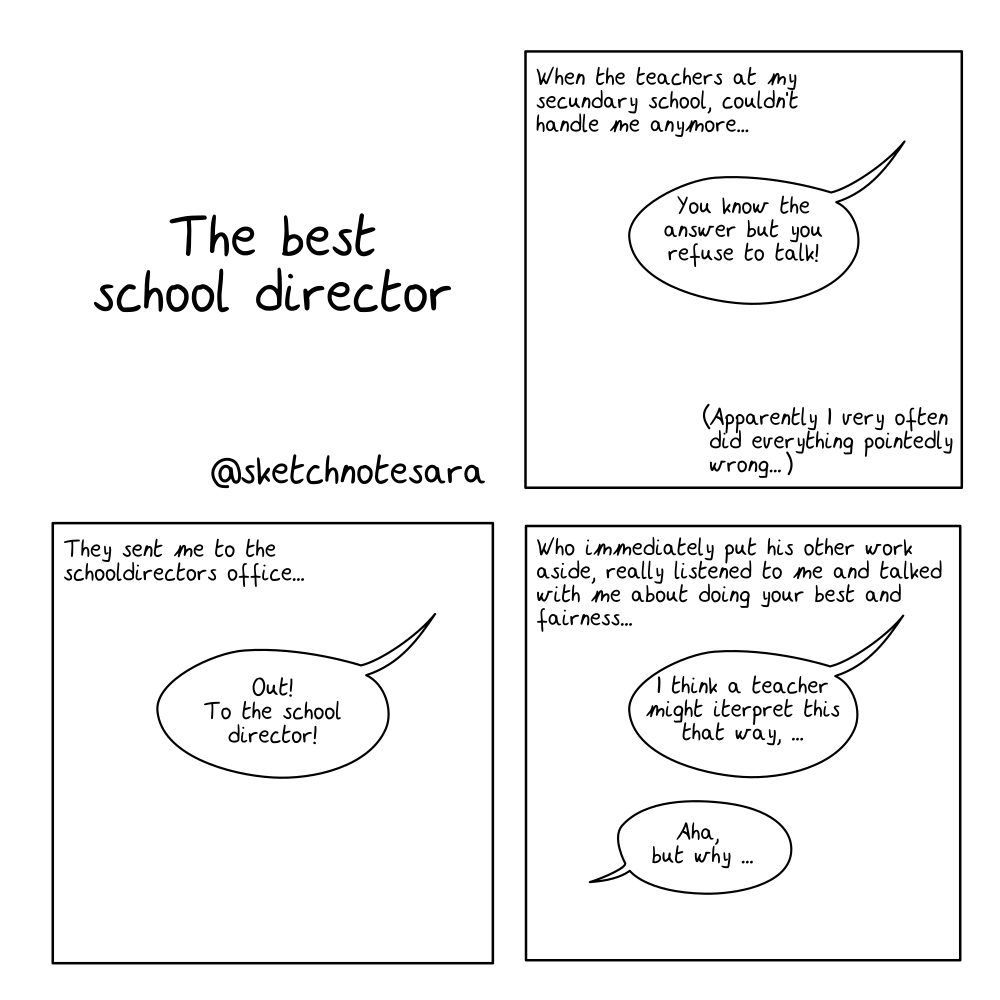 The best
school director
@sketchnotesara
When the teachers at my
secundary school, couldn't
handle me anymore...
You know the
answer but you
refuse to talk!
(Apparently I very often
did everything pointedly
wrong...)
They sent me to the
schooldirectors office...
Out!
To the school
director!
Who immediately put his other work
aside, really listened to me and talked
with me about doing your best and
fairness...
I think a teacher
might iterpret this
that way, ...
Aha,
but why ...